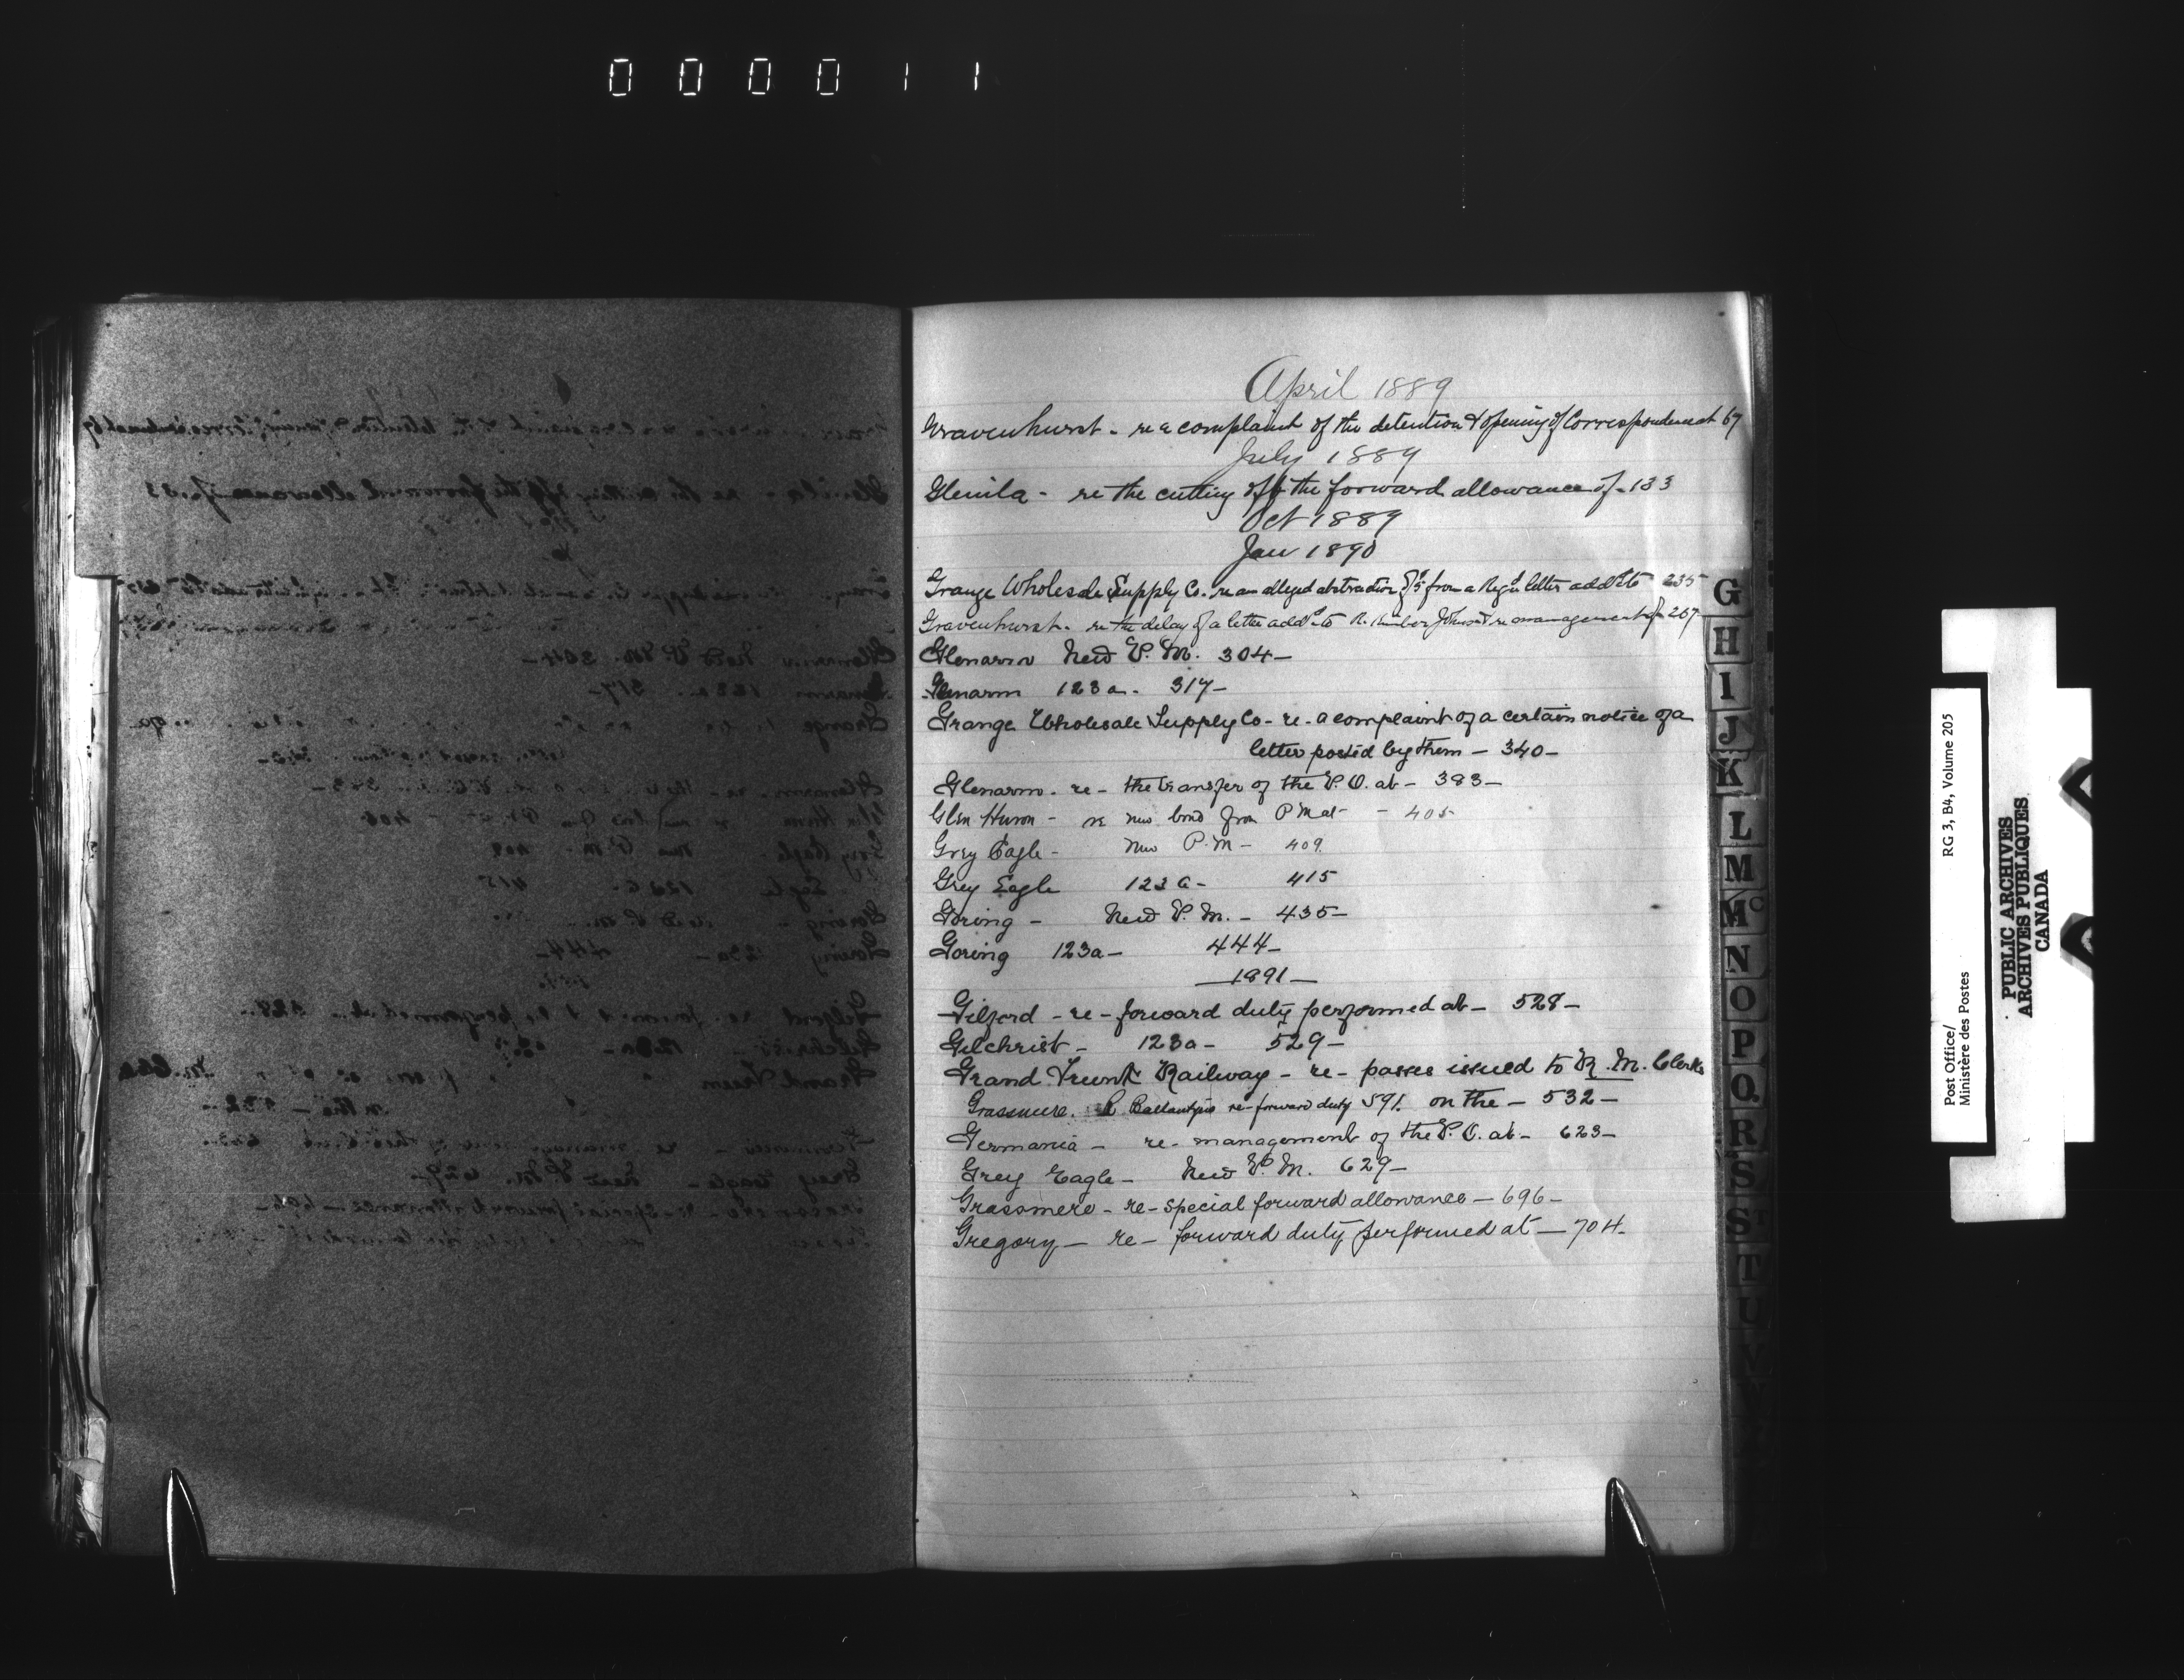 000011
April 1889
Gravenhurst - re a complaint of the detention & opening of Correspondence at 67
July 1889
Glenila - re the cutting off the forward allowance of - 133
Oct 1889
Jan 1890
Grange Wholesale Supply Co. re an alleged abstraction of $5 from a Regd letter addd to 235
Gravenhurst - re the delay of a letter addd to R. Johnson re management of 267
Glenarm New P.M. 304-
Glenarm 123a - 317-
Grange Wholesale Supply Co - re - a complaint of a certain notice of a
letter posted by them - 340-
Glenarm - re - the transfer of the P.O. at - 383-
Glen Huron - re new bond from P M at - 405-
Grey Eagle - New P.M - 409.
Grey Eagle 123 a - 415
Goring - New P.M. - 435-
Goring 123a - 444-
1891-
Gilford - re - forward duty performed at - 528-
Gilchrist - 123a - 529-
Grand Trunk Railway - re - passes issued to R.M. Clerks
Grassmere. R Ballantyne re forward duty 591. on the - 532-
Germania - re - management of the P.O. at - 623-
Grey Eagle - New P.M. 629-
Grassmere - re - special forward allowance - 696-
Gregory - re - forward duty performed at - 704.
G
H
I
J
K
L
M
Mc
N
O
P
Q
R
S
S
T
U
V
Post Office/
Ministère des Postes
RG 3, B4, Volume 205
PUBLIC ARCHIVES
ARCHIVES PUBLIQUES
CANADA